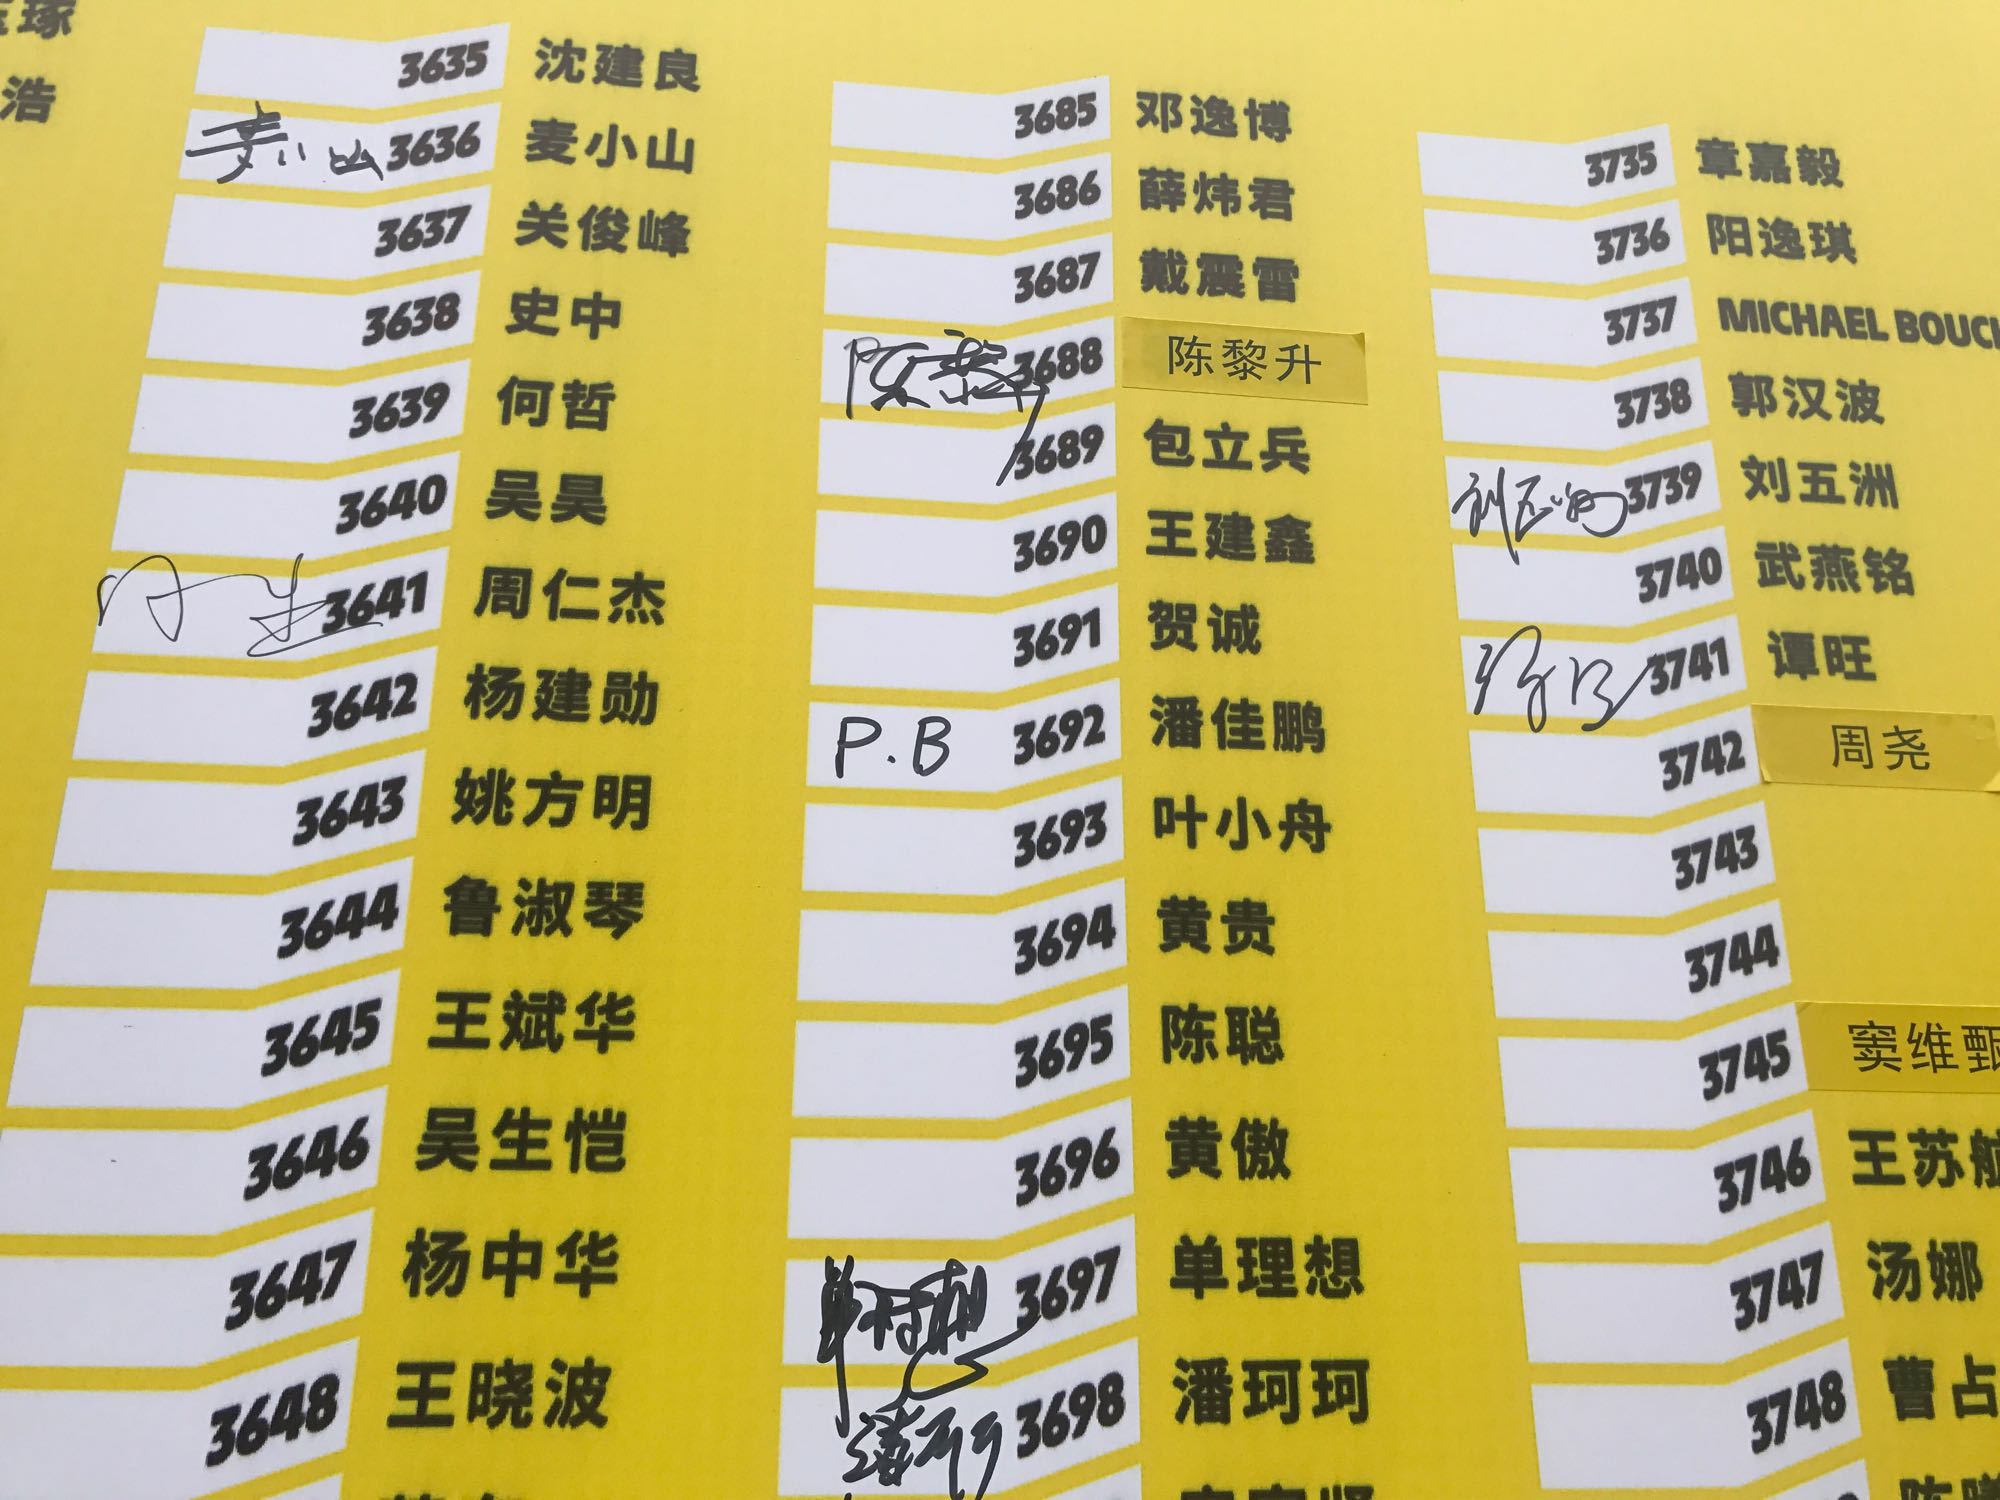 浩
3635 沈建良
麦小山 3636 麦小山
3637 关俊峰
3638 史中
3639 何哲
3640 吴昊
3641 周仁杰
3642 杨建勋
3643 姚方明
3644 鲁淑琴
3645 王斌华
3646 吴生恺
3647 杨中华
3648 王晓波
3685 邓逸博
3686 薛炜君
3687 戴震雷
陈黎升 3688 陈黎升
3689 包立兵
3690 王建鑫
3691 贺诚
P.B 3692 潘佳鹏
3693 叶小舟
3694 黄贵
3695 陈聪
3696 黄傲
单理想 3697 单理想
潘珂珂 3698 潘珂珂
3735 章嘉毅
3736 阳逸琪
3737 MICHAEL BOUCH
3738 郭汉波
刘五洲 3739 刘五洲
3740 武燕铭
3741 谭旺
3742 周尧
3743
3744
3745 窦维甄
3746 王苏航
3747 汤娜
3748 曹占